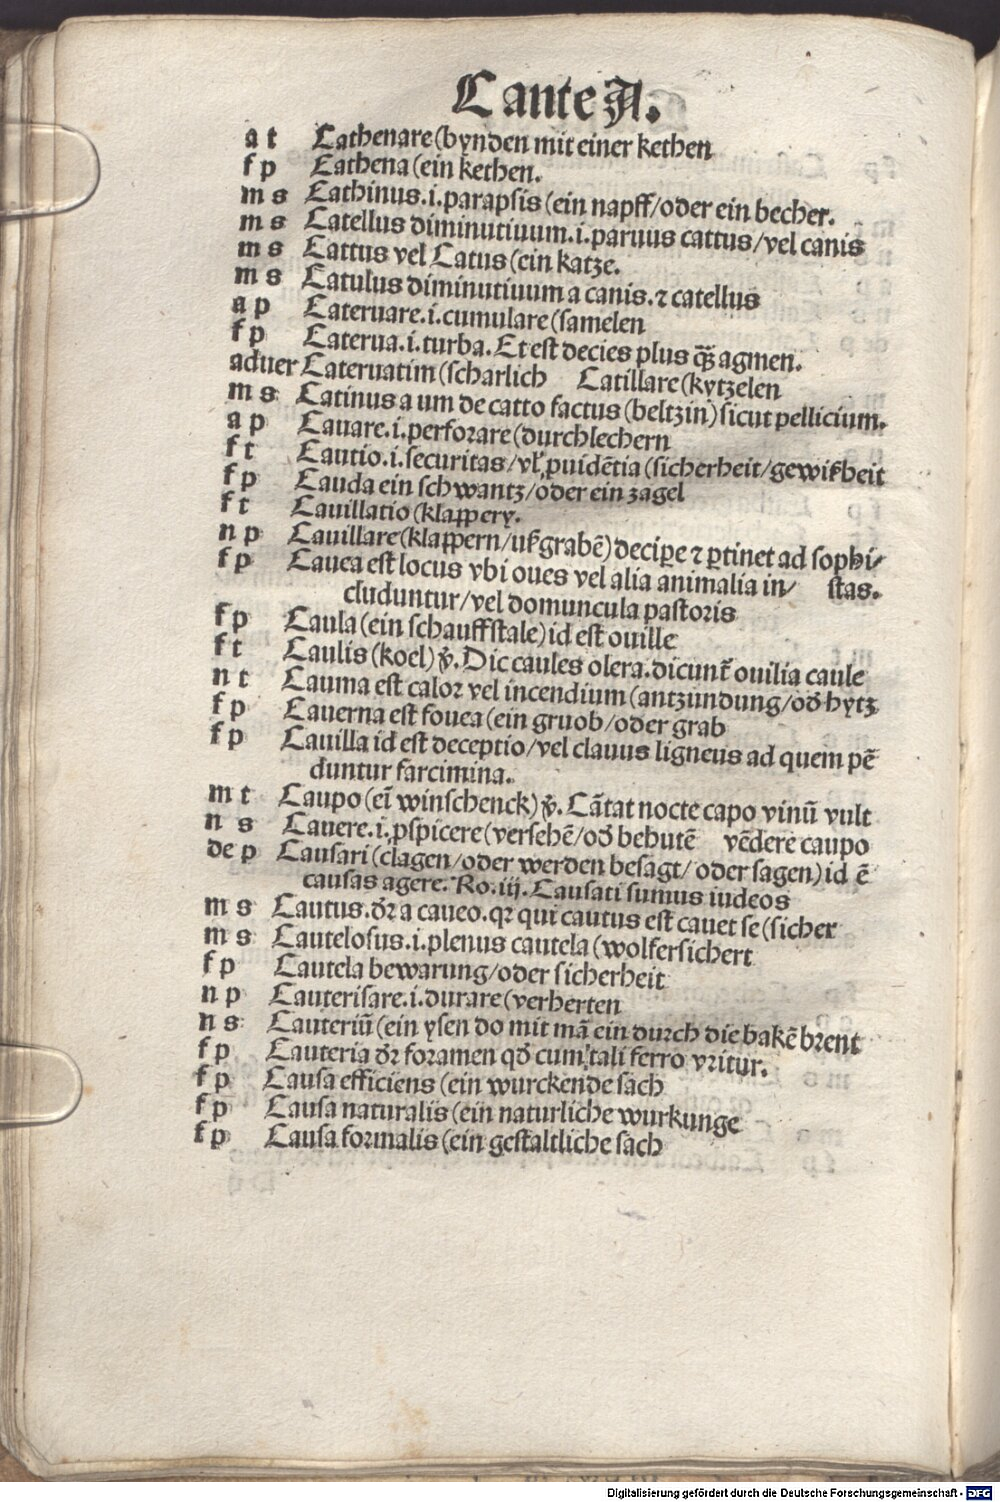 C ante A.
a t Cathenare (bynden mit einer kethen
f p Cathena (ein kethen.
m s Cathinus .i. parapsis (ein napff/oder ein becher.
m s Catellus diminutiuum .i. paruus cattus/vel canis
m s Cattus vel Catus (ein katze.
m s Catulus diminutiuum a canis. ⁊ catellus
a p Cateruare .i. cumulare (samelen
f p Caterua .i. turba. Et est decies plus qȝ agmen.
aduer Cateruatim (scharlich Catillare (kytzelen
m s Catinus a um de catto factus (beltzin) sicut pellicium.
a p Cauare .i. perforare (durchlechern
f t Cautio .i. securitas/vl' ꝓuidētia (sicherheit/gewißheit
f p Cauda ein schwantz/oder ein zagel
f t Cauillatio (klappery.
n p Cauillare (klappern/ußgrabē) decipe ⁊ ꝑtinet ad sophi/
f p Cauea est locus vbi oues vel alia animalia in/ stas.
cluduntur/vel domuncula pastoris
f p Caula (ein schauffstale) id est ouille
f t Caulis (koel) ꝟ. Dic caules olera. dicunt̄ ouilia caule
n t Cauma est calor vel incendium (antzundung/od̄ hytz
f p Cauerna est fouea (ein gruob/oder grab
f p Cauilla id est deceptio/vel clauus ligneus ad quem pē
duntur farcimina.
m t Caupo (eī winschenck) ꝟ. Cātat nocte capo vinū vult
n s Cauere .i. ꝓspicere (versehē/od̄ behutē vēdere caupo
de p Causari (clagen/oder werden besagt/oder sagen) id ē
causas agere. Ro. iij. Causati sumus iudeos
m s Cautus. dr̄ a caueo. qꝛ qui cautus est cauet se (sicher
m s Cautelosus .i. plenus cautela (wolfersichert
f p Cautela bewarung/oder sicherheit
n p Cauterisare .i. durare (verherten
n s Cauteriū (ein ysen do mit mā ein durch die bakē brent
f p Cauteria dr̄ foramen qd̄ cum tali ferro vritur.
f p Causa efficiens (ein wurckende sach
f p Causa naturalis (ein naturliche wurkunge
f p Causa formalis (ein gestaltliche sach
Digitalisierung gefördert durch die Deutsche Forschungsgemeinschaft - DFG